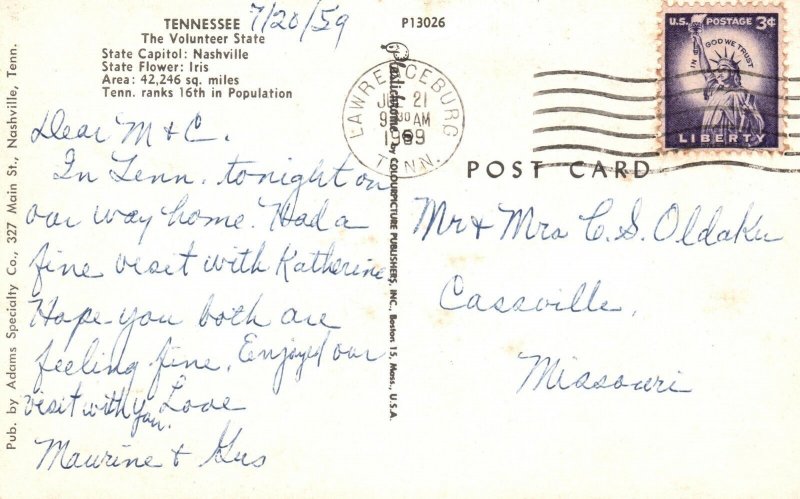 TENNESSEE 7/20/59
The Volunteer State
State Capitol: Nashville
State Flower: Iris
Area: 42,246 sq. miles
Tenn. ranks 16th in Population
P13026
Pub. by Adams Specialty Co., 327 Main St., Nashville, Tenn.
Plastichrome by COLOURPICTURE PUBLISHERS, INC., Boston 15, Mass. U.S.A.
LAWRENCEBURG
JUL 21
9 30 AM
1959
TENN.
U.S. POSTAGE 3¢
IN GOD WE TRUST
LIBERTY
POST CARD
Dear M & C.
In Tenn. tonight on
our way home. Had a
fine visit with Katherine
Hope you both are
feeling fine. Enjoyed our
visit with you. Love
Maurine & Gus
Mr & Mrs C. S. Oldaku
Cassville,
Missouri